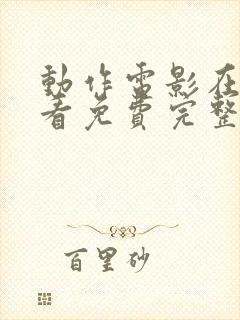 動作電影在
看免費完整
百里砂